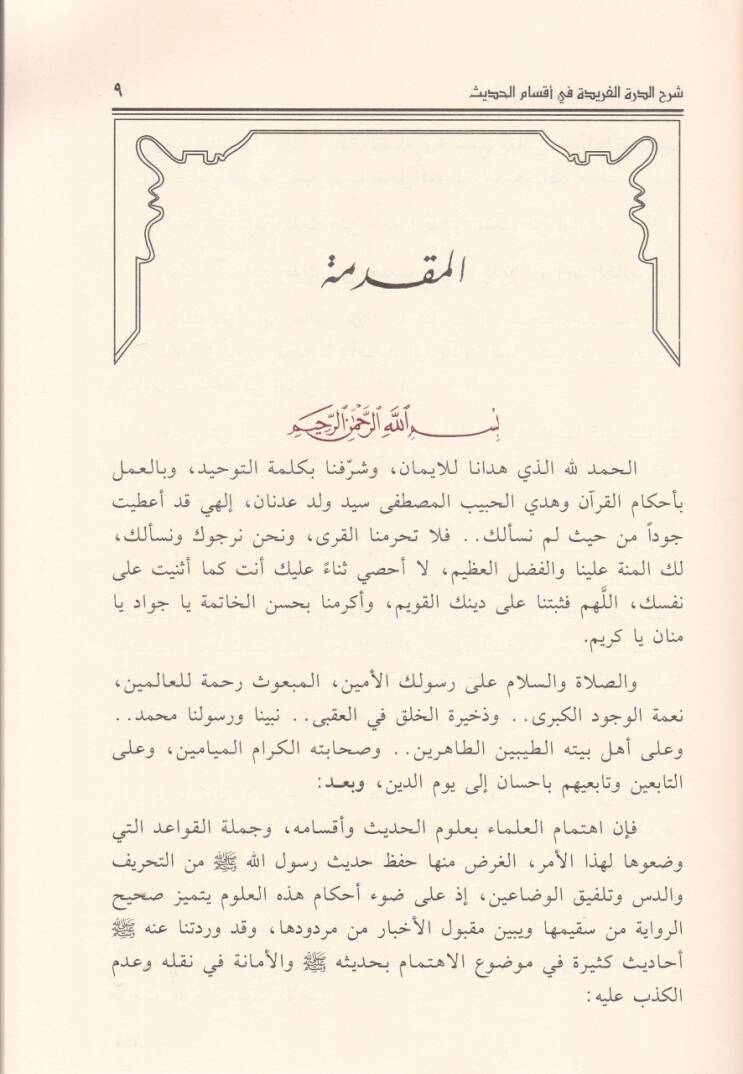 شرح الدرة الفريدة في أقسام الحديث
٩
المقدمة
بسم الله الرحمن الرحيم
الحمد لله الذي هدانا للايمان، وشرّفنا بكلمة التوحيد، وبالعمل
بأحكام القرآن وهدي الحبيب المصطفى سيد ولد عدنان، إلهي قد أعطيت
جوداً من حيث لم نسألك.. فلا تحرمنا القرى، ونحن نرجوك ونسألك،
لك المنة علينا والفضل العظيم، لا أحصي ثناءً عليك أنت كما أثنيت على
نفسك، اللَّهم فثبتنا على دينك القويم، وأكرمنا بحسن الخاتمة يا جواد يا
منان يا كريم.
والصلاة والسلام على رسولك الأمين، المبعوث رحمة للعالمين،
نعمة الوجود الكبرى.. وذخيرة الخلق في العقبى.. نبينا ورسولنا محمد..
وعلى أهل بيته الطيبين الطاهرين.. وصحابته الكرام الميامين، وعلى
التابعين وتابعيهم باحسان إلى يوم الدين، وبعد:
فإن اهتمام العلماء بعلوم الحديث وأقسامه، وجملة القواعد التي
وضعوها لهذا الأمر، الغرض منها حفظ حديث رسول الله ﷺ من التحريف
والدس وتلفيق الوضاعين، إذ على ضوء أحكام هذه العلوم يتميز صحيح
الرواية من سقيمها ويبين مقبول الأخبار من مردودها، وقد وردتنا عنه ﷺ
أحاديث كثيرة في موضوع الاهتمام بحديثه ﷺ والأمانة في نقله وعدم
الكذب عليه: